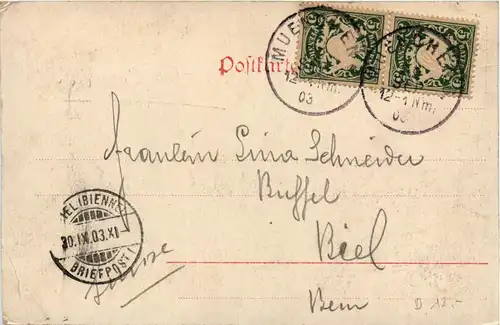 Postkarte
MUENCHEN
12-1 Nm.
03
12-1 Nm.
03
5 5
Fräulein Lina Schneider
Buffet
Biel
Bern
Suisse
BIEL (BIENNE)
30.IX.03.XI-
BRIEFPOST
D 12.-